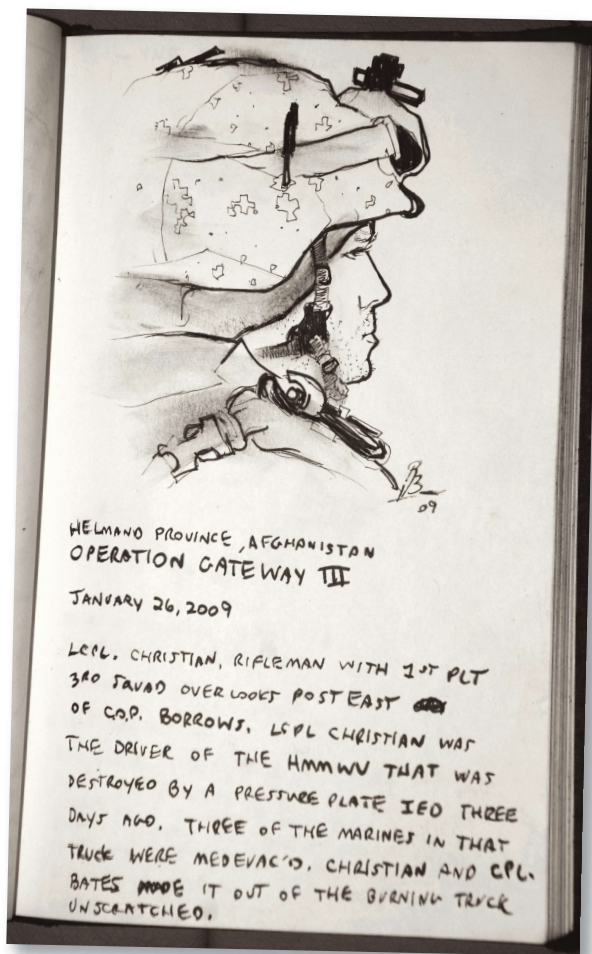 09
HELMAND PROVINCE, AFGHANISTAN
OPERATION GATEWAY III
JANUARY 26, 2009
LCPL. CHRISTIAN, RIFLEMAN WITH 1ST PLT
3RD SQUAD OVERLOOKS POST EAST
OF C.O.P. BORROWS. LCPL CHRISTIAN WAS
THE DRIVER OF THE HMMWV THAT WAS
DESTROYED BY A PRESSURE PLATE IED THREE
DAYS AGO. THREE OF THE MARINES IN THAT
TRUCK WERE MEDEVAC'D. CHRISTIAN AND CPL.
BATES MADE IT OUT OF THE BURNING TRUCK
UNSCRATCHED.